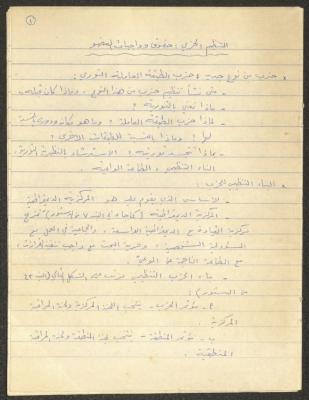 (١)
التنظيم الحزبي : حقوق وواجبات العضو
* حزب من نوع جديد : حزب الطبقة العاملة الثوري :
- متى نشأ تنظيم حزب من هذا النوع، وماذا كان قبله
- ماذا تعني بالثورية ؟
- لماذا حزب الطبقة العاملة ؟ وما هو
لها ؟ وماذا بالنسبة للطبقات الأخرى ؟
- بماذا تتجسد ثوريته ؟ الاسترشاد بالنظرية الثورية
البناء التنظيمي، الطاعة الواعية.
* البناء التنظيمي للحزب :
- الأساس الذي يقوم عليه هو المركزية الديمقراطية
- المركزية الديمقراطية (كما جاء في البند من الدستور) تمزج
مركزية القيادة مع الديمقراطية الواسعة، والجماعية في العمل مع
المسؤولية الشخصية، وحرية البحث مع واجب تنفيذ القرارات،
مع الطاعة الناتجة عن الوعي.
- بناء الحزب التنظيمي مرتب على الشكل التالي (البند
من الدستور) :
أ- مؤتمر الحزب - ينتخب اللجنة المركزية ولجنة المراقبة
المركزية.
ب- مؤتمر المنطقة - ينتخب لجنة المنطقة ولجنة المراقبة
المنطقية.